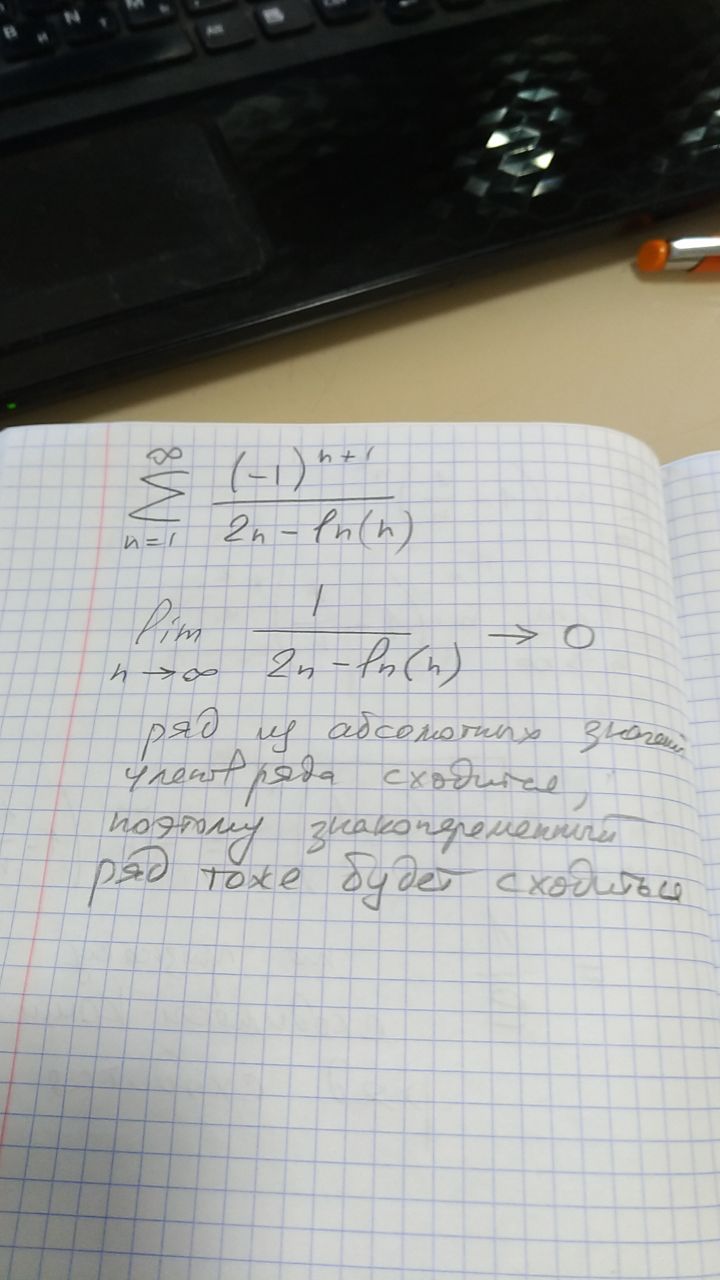 ∞
∑ (-1)^{n+1} / (2n - ln(n))
n=1
lim 1 / (2n - ln(n)) → 0
n→∞
ряд из абсолютных значений
членов ряда сходится,
поэтому знакопеременный
ряд тоже будет сходиться